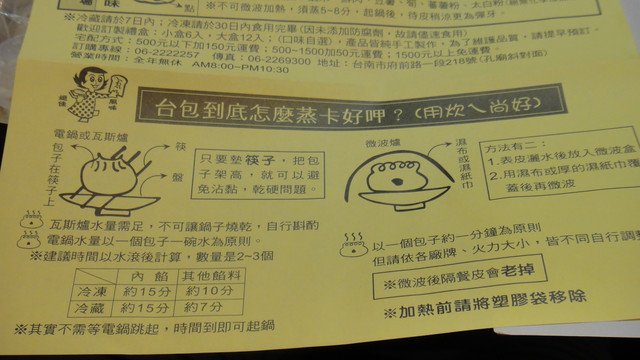 點 ※不可微波加熱，須蒸5~8分，起鍋後，待皮稍涼更為彈牙。
※冷藏請於7日內；冷凍請於30日內食用完畢(因未添加防腐劑，故請儘速食用)
歡迎訂製禮盒：小盒6入，大盒12入；(口味自選)，產品皆純手工製作，為了維護品質，請提早預訂。
宅配方式：500元以下加150元運費；500~1500加50元運費；1500元以上免運費。
訂購專線：06-2222257 傳真：06-2269300 地址：台南市府前路一段218號(孔廟斜對面)
營業時間：全年無休 AM8:00-PM10:30
風味
台包到底怎麼蒸卡好呷？(用炊ㄟ尚好)
電鍋或瓦斯爐
包子在筷子上
筷
盤
只要墊筷子，把包
子架高，就可以避
免沾黏，乾硬問題。
微波爐
濕布或濕紙巾
方法有二：
1.表皮灑水後放入微波盒
2.用濕布或厚的濕紙巾覆
蓋後再微波
瓦斯爐水量需足，不可讓鍋子燒乾，自行斟酌
電鍋水量以一個包子一碗水為原則。
※建議時間以水滾後計算，數量是2~3個
內餡 其他餡料
冷凍 約15分 約10分
冷藏 約15分 約7分
※其實不需等電鍋跳起，時間到即可起鍋
以一個包子約一分鐘為原則
但請依各廠牌、火力大小，皆不同自行調整
※微波後隔餐皮會老掉
※加熱前請將塑膠袋移除